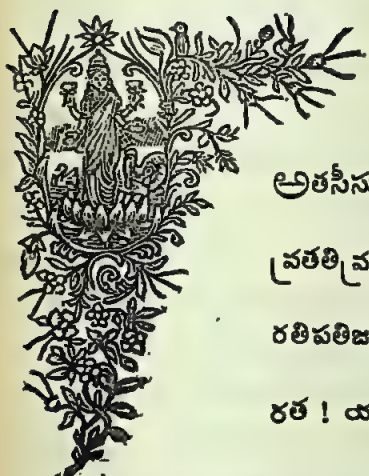 అతసీసు
వ్రతతివ్ర
రతిపతిజ
రత ! య